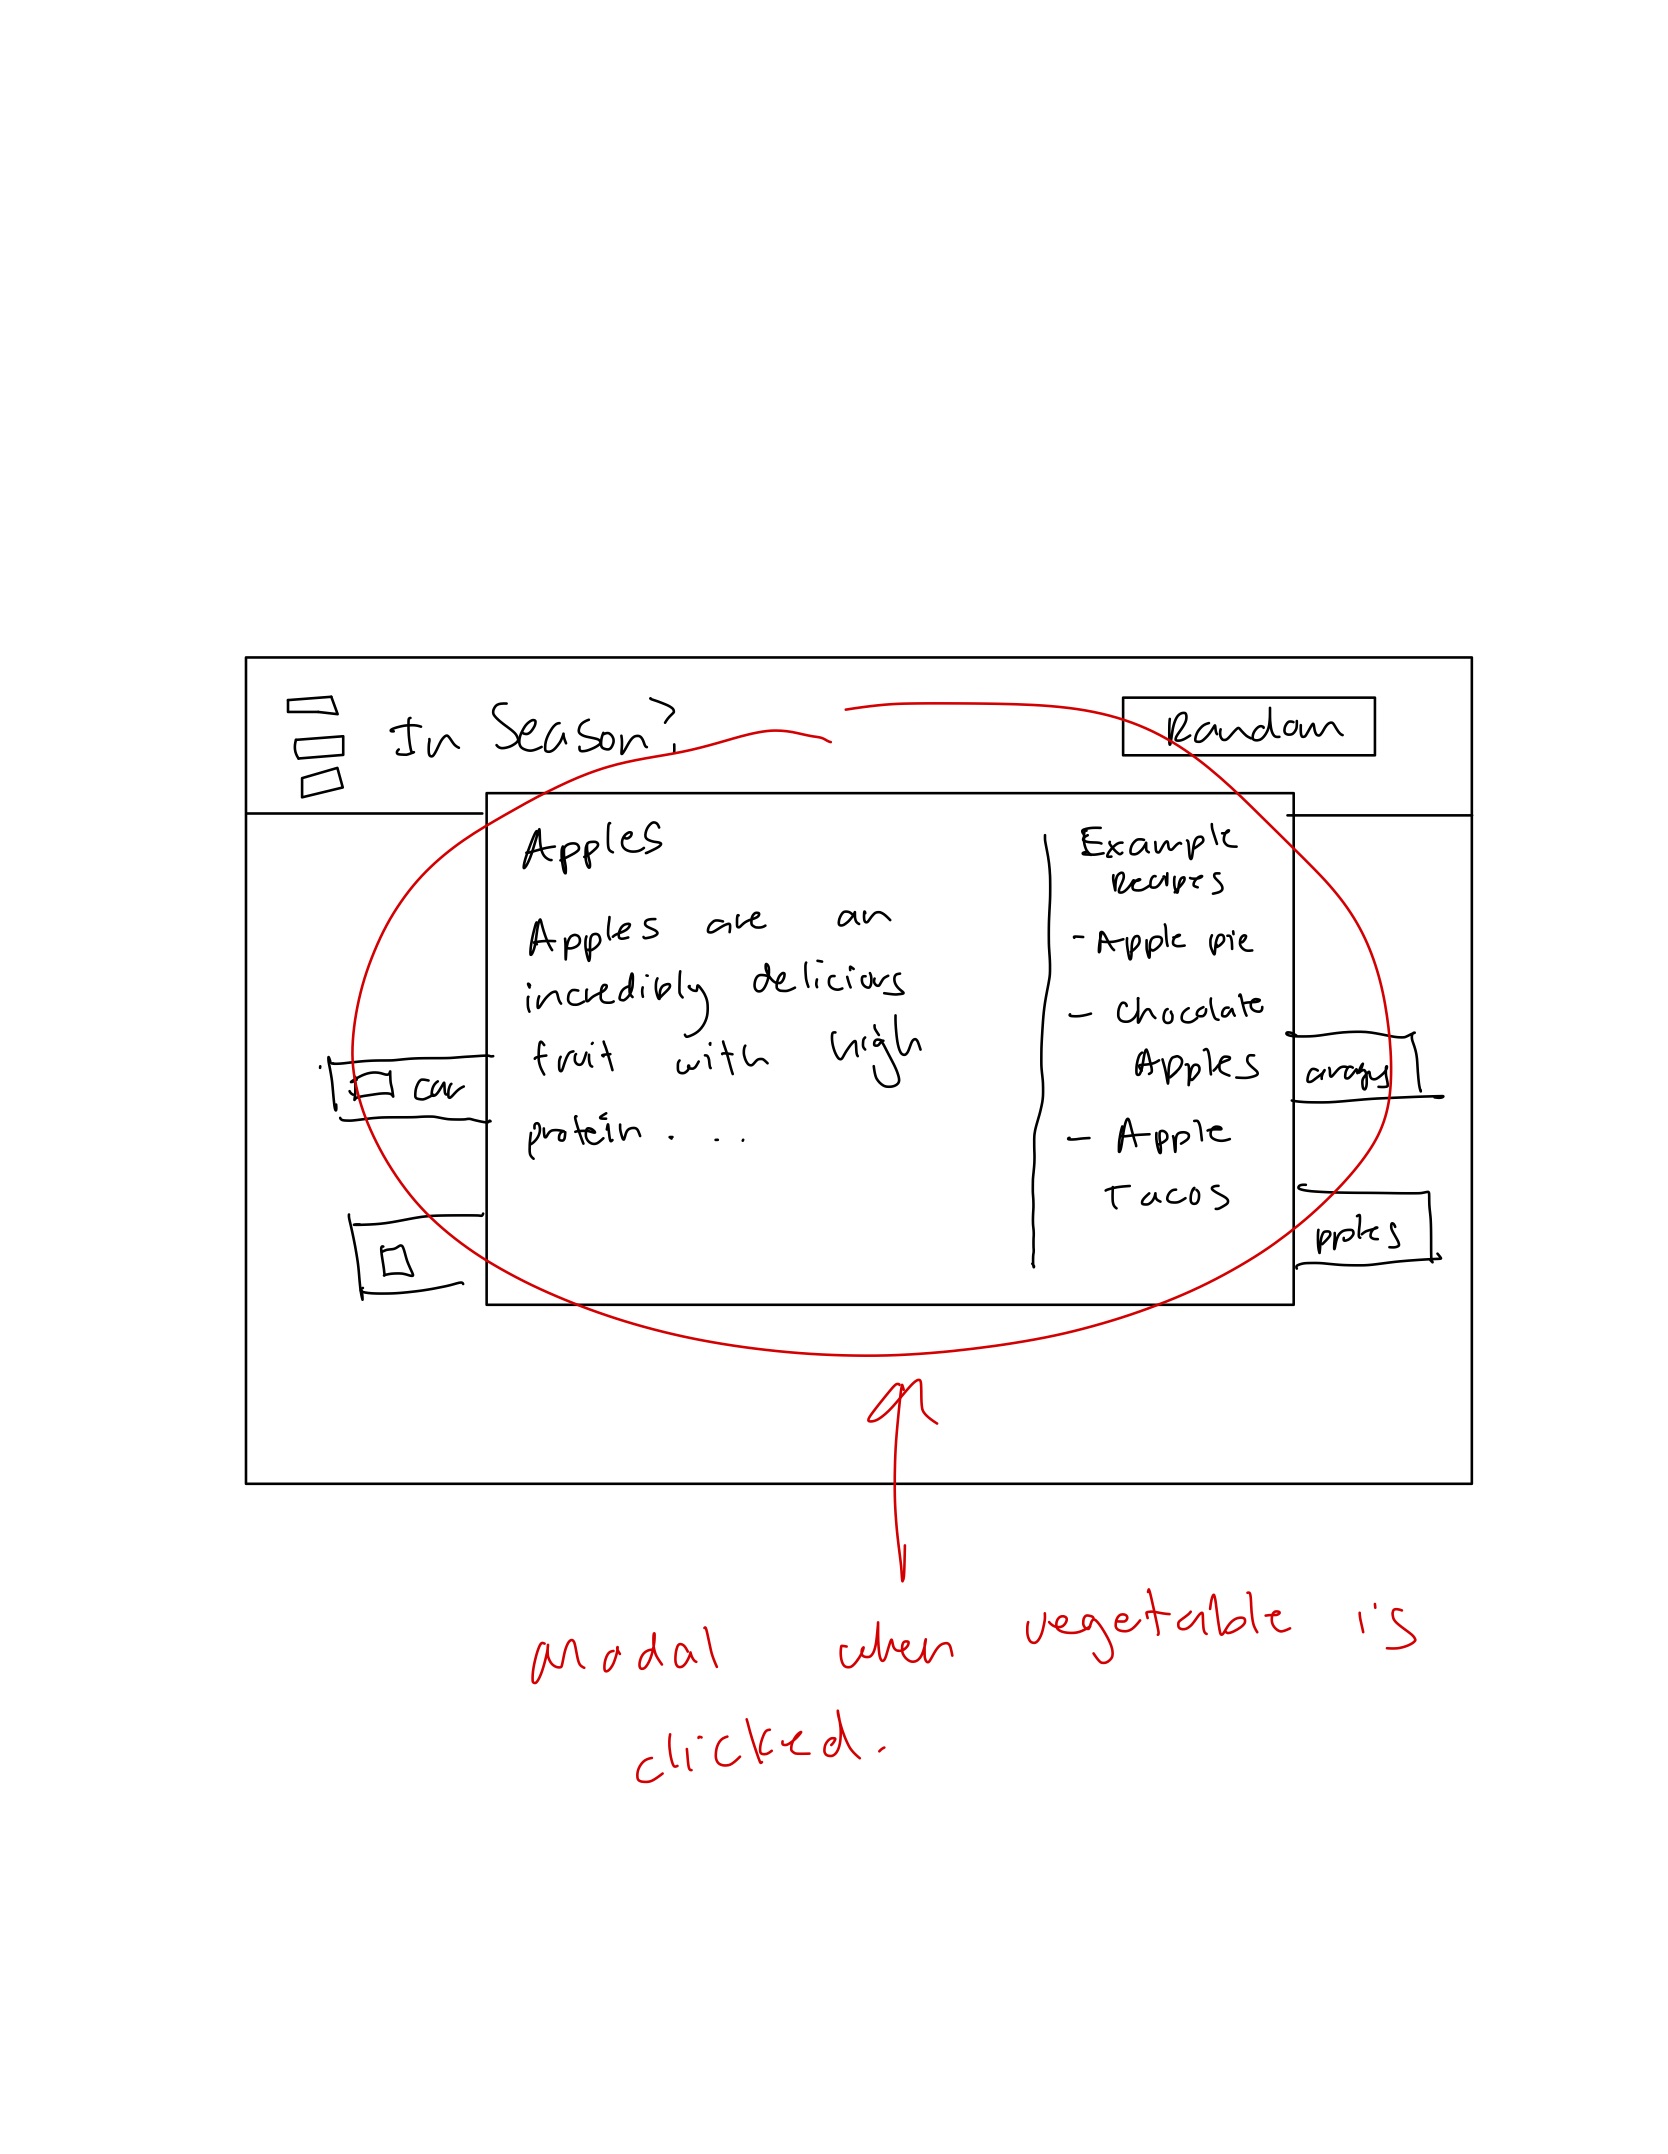 In Season?
Random
Apples
Apples are an
incredibly delicious
fruit with high
protin . . .
Example
Recipes
- Apple pie
- Chocolate
Apples
- Apple
Tacos
car
pples
modal when vegetable is
clicked.